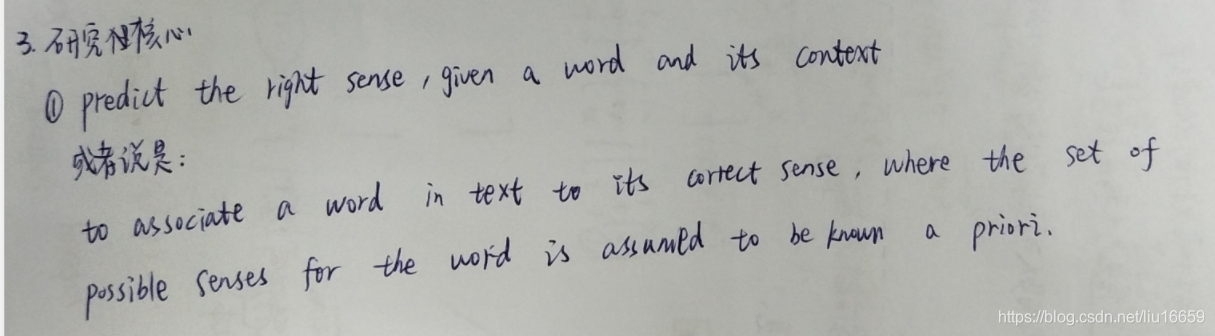 3. 研究性核心
① predict the right sense, given a word and its context
或者说是:
to associate a word in text to its correct sense, where the set of
possible senses for the word is assumed to be known a priori.
https://blog.csdn.net/liu16659